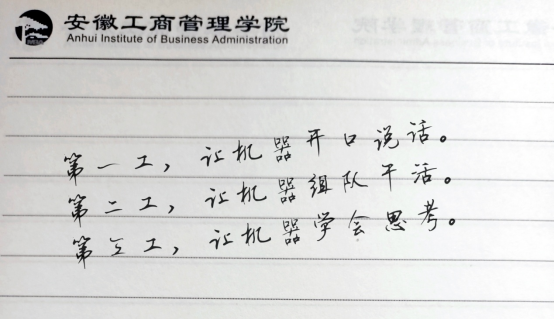 安徽工商管理学院
Anhui Institute of Business Administration
第一工，让机器开口说话。
第二工，让机器组队干活。
第三工，让机器学会思考。